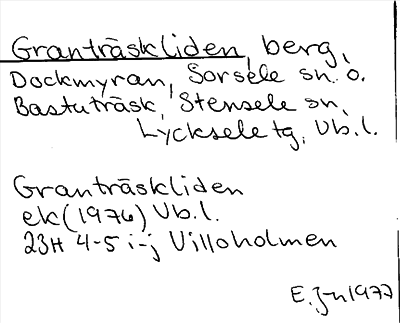 Granträskliden, berg,
Dockmyran, Sorsele sn. o.
Bastuträsk, Stensele sn,
Lycksele tg, Vb.l.
Granträskliden
ek (1976) Vb.l.
23H 4-5 i-j Villoholmen
E. Jn 1977